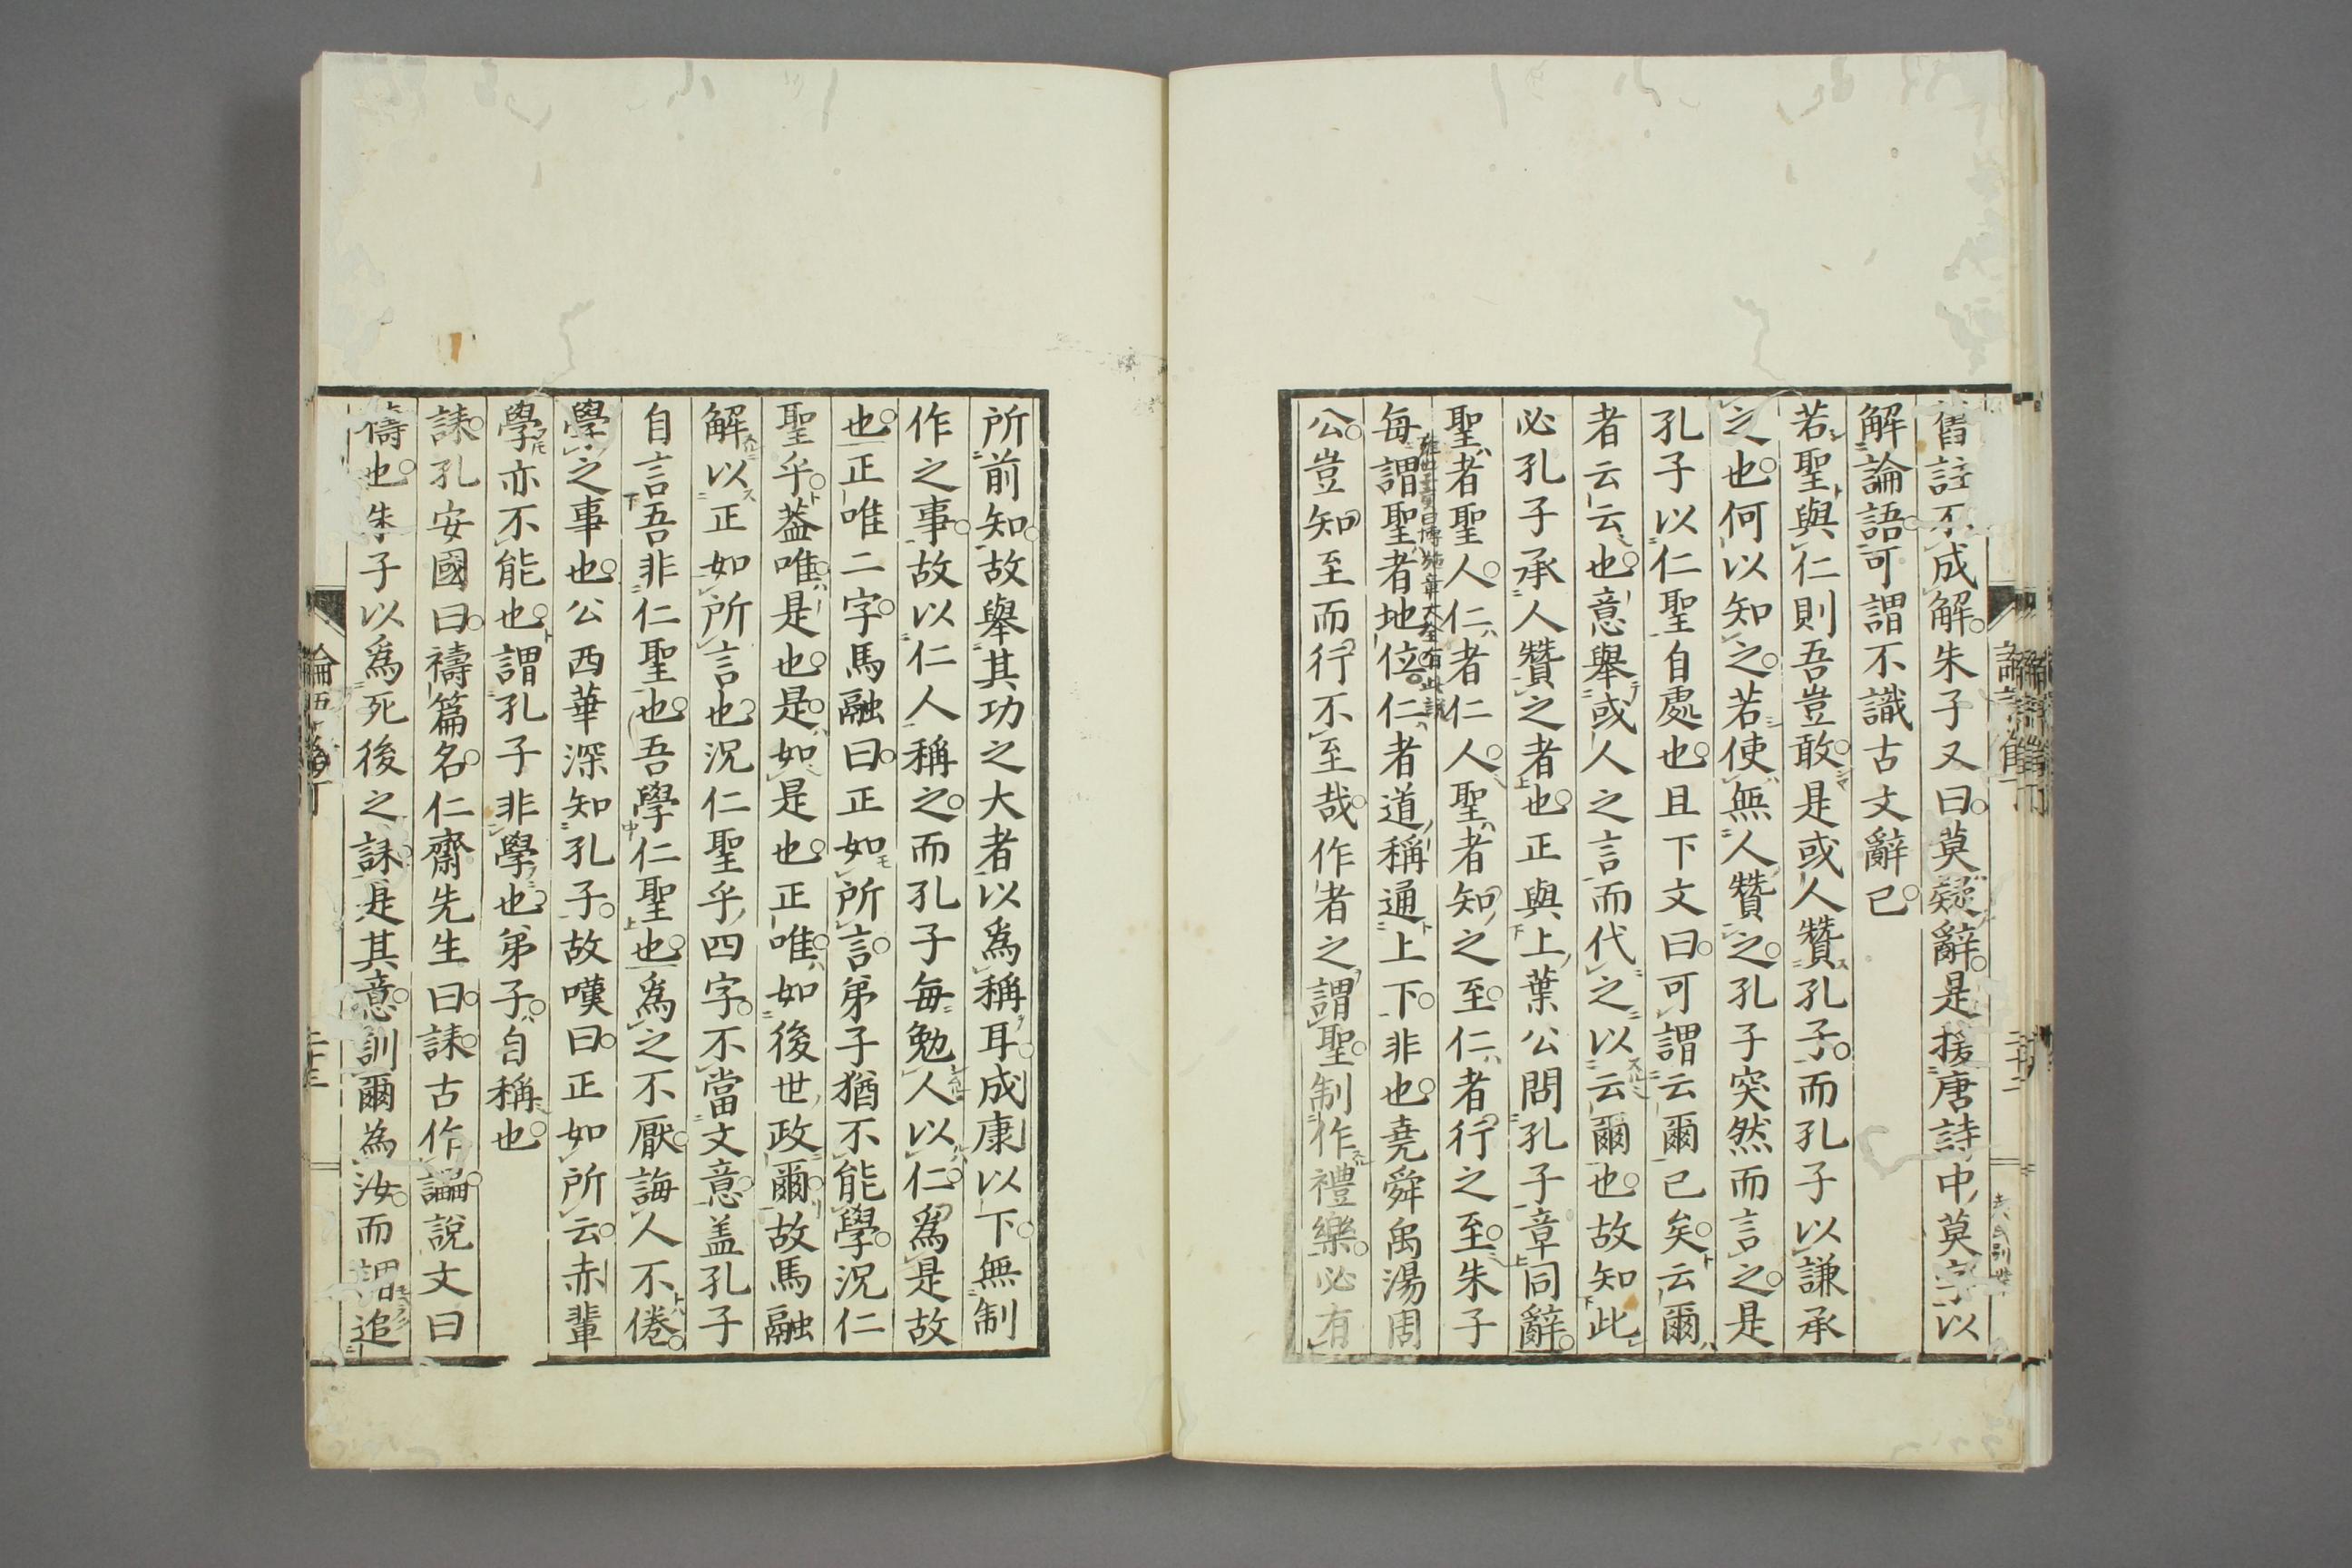 舊註不成解朱子又曰莫疑辭是援唐詩中莫字以
解論語可謂不識古文辭已
若聖與仁則吾豈敢是或人贊孔子而孔子以謙承
之也何以知之若使無人贊之孔子突然而言之是
孔子以仁聖自處也且下文曰可謂云爾已矣云爾
者云云也意舉或人之言而代之以云爾也故知此
必孔子承人贊之者也正與上葉公問孔子章同辭
聖者聖人仁者仁人聖者知之至仁者行之至朱子
每謂聖者地位仁者道稱通上下非也堯舜禹湯周
公豈知至而行不至哉作者之謂聖制作禮樂必有
所前知故舉其功之大者以爲稱耳成康以下無制
作之事故以仁人稱之而孔子每勉人以仁爲是故
也正唯二字馬融曰正如所言弟子猶不能學況仁
聖乎葢唯是也是如是也正唯如後世政爾故馬融
解以正如所言也況仁聖乎四字不當文意盖孔子
自言吾非仁聖也吾學仁聖也爲之不厭誨人不倦
學之事也公西華深知孔子故嘆曰正如所云赤輩
學亦不能也謂孔子非學也弟子自稱也
誄孔安國曰禱篇名仁齋先生曰誄古作讄說文曰
禱也朱子以爲死後之誄是其意訓爾為汝而謂追